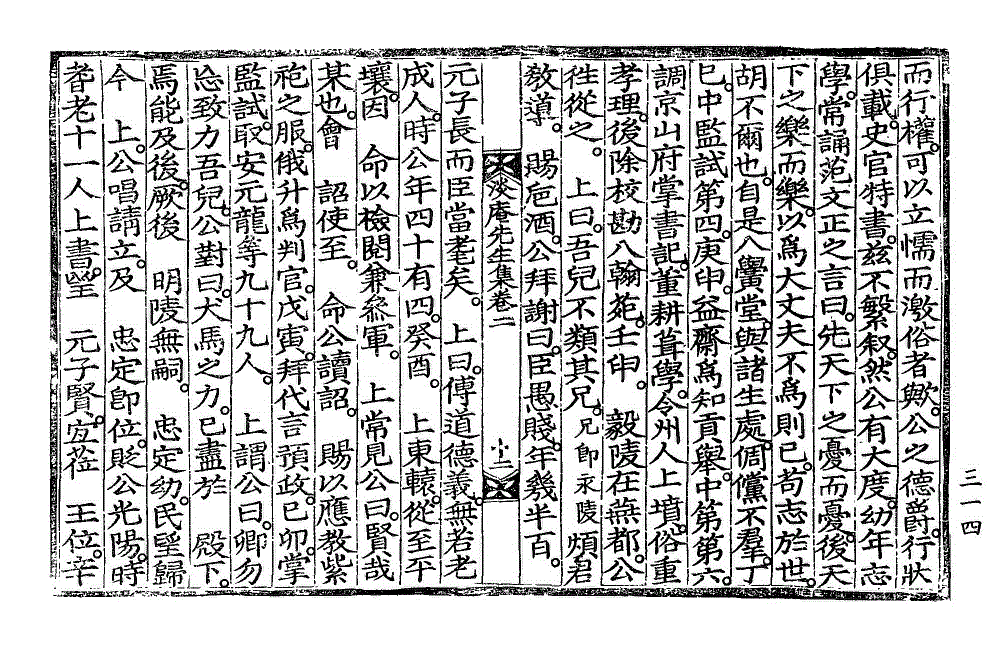 而行權。可以立懦而激俗者歟。公之德爵。行狀
俱載。史官特書。玆不繫叙。然公有大度。幼年志
學。常誦范文正之言曰。先天下之憂而憂。後天
下之樂而樂。以爲大丈夫不爲則已。苟志於世。
胡不爾也。自是入黌堂。與諸生處。倜儻不羣。丁
巳。中監試第四。庚申。益齋爲知貢舉。中第第六。
調京山府掌書記。董耕葺學。令州人上墳。俗重
孝理。後除校勘入翰苑。壬申。 毅陵在燕都。公
往從之。 上曰。吾兒不類其兄。兄卽永陵 煩君
敎導。 賜巵酒。公拜謝曰。臣愚賤。年幾半百。
淡庵先生集卷二
十二
元子長而臣當老耄矣。 上曰。傅道德義。無若老
成人。時公年四十有四。癸酉。 上東轅。從至平
壤。因 命以檢閱兼叅軍。 上常見公曰。賢哉
某也。會 詔使至。 命公讀詔。 賜以應敎紫
袍之服。俄升爲判官。戊寅。拜代言預政。己卯。掌
監試。取安元龍等九十九人。 上謂公曰。卿勿
忘致力吾兒。公對曰。犬馬之力。已盡於 殿下。
焉能及後。厥後 明陵無嗣。 忠定幼。民望歸
今 上。公唱請立。及 忠定卽位。貶公光陽。時
耆老十一人上書。望 元子賢。宜莅 王位。辛
三一四